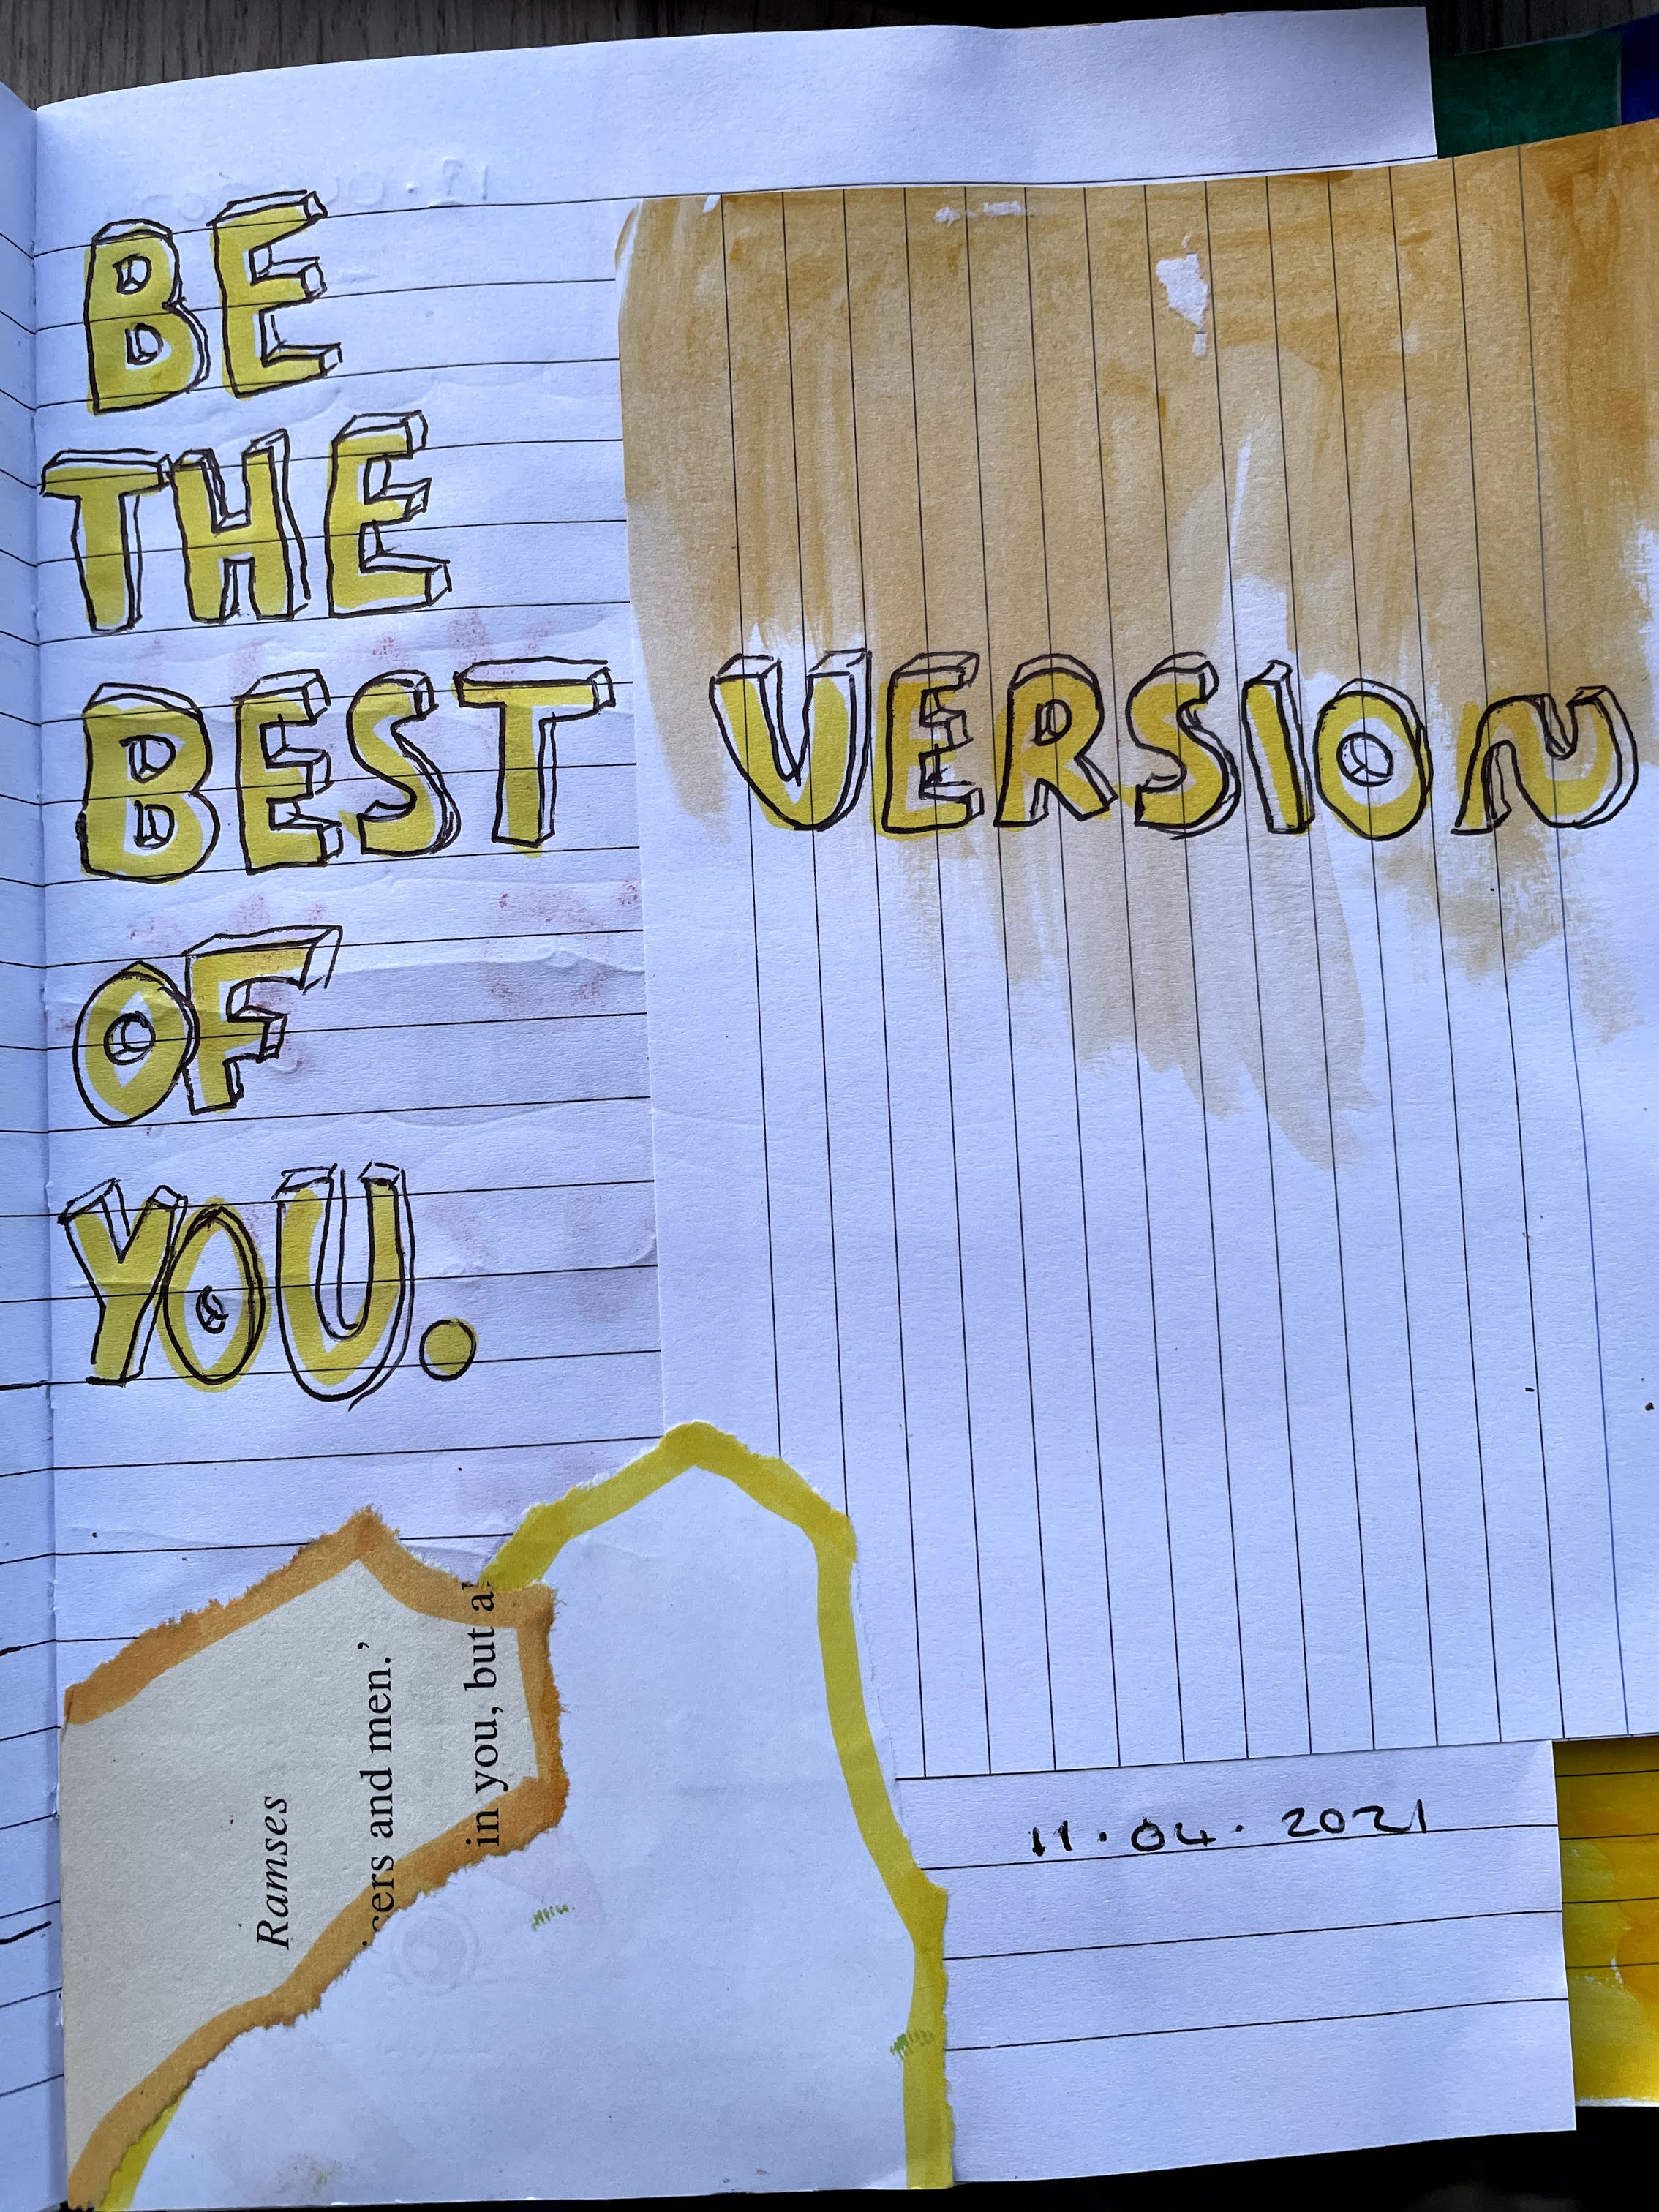 BE
THE
BEST VERSION
OF
YOU.
Ramses
cers and men.’
in you, but
11.04.2021